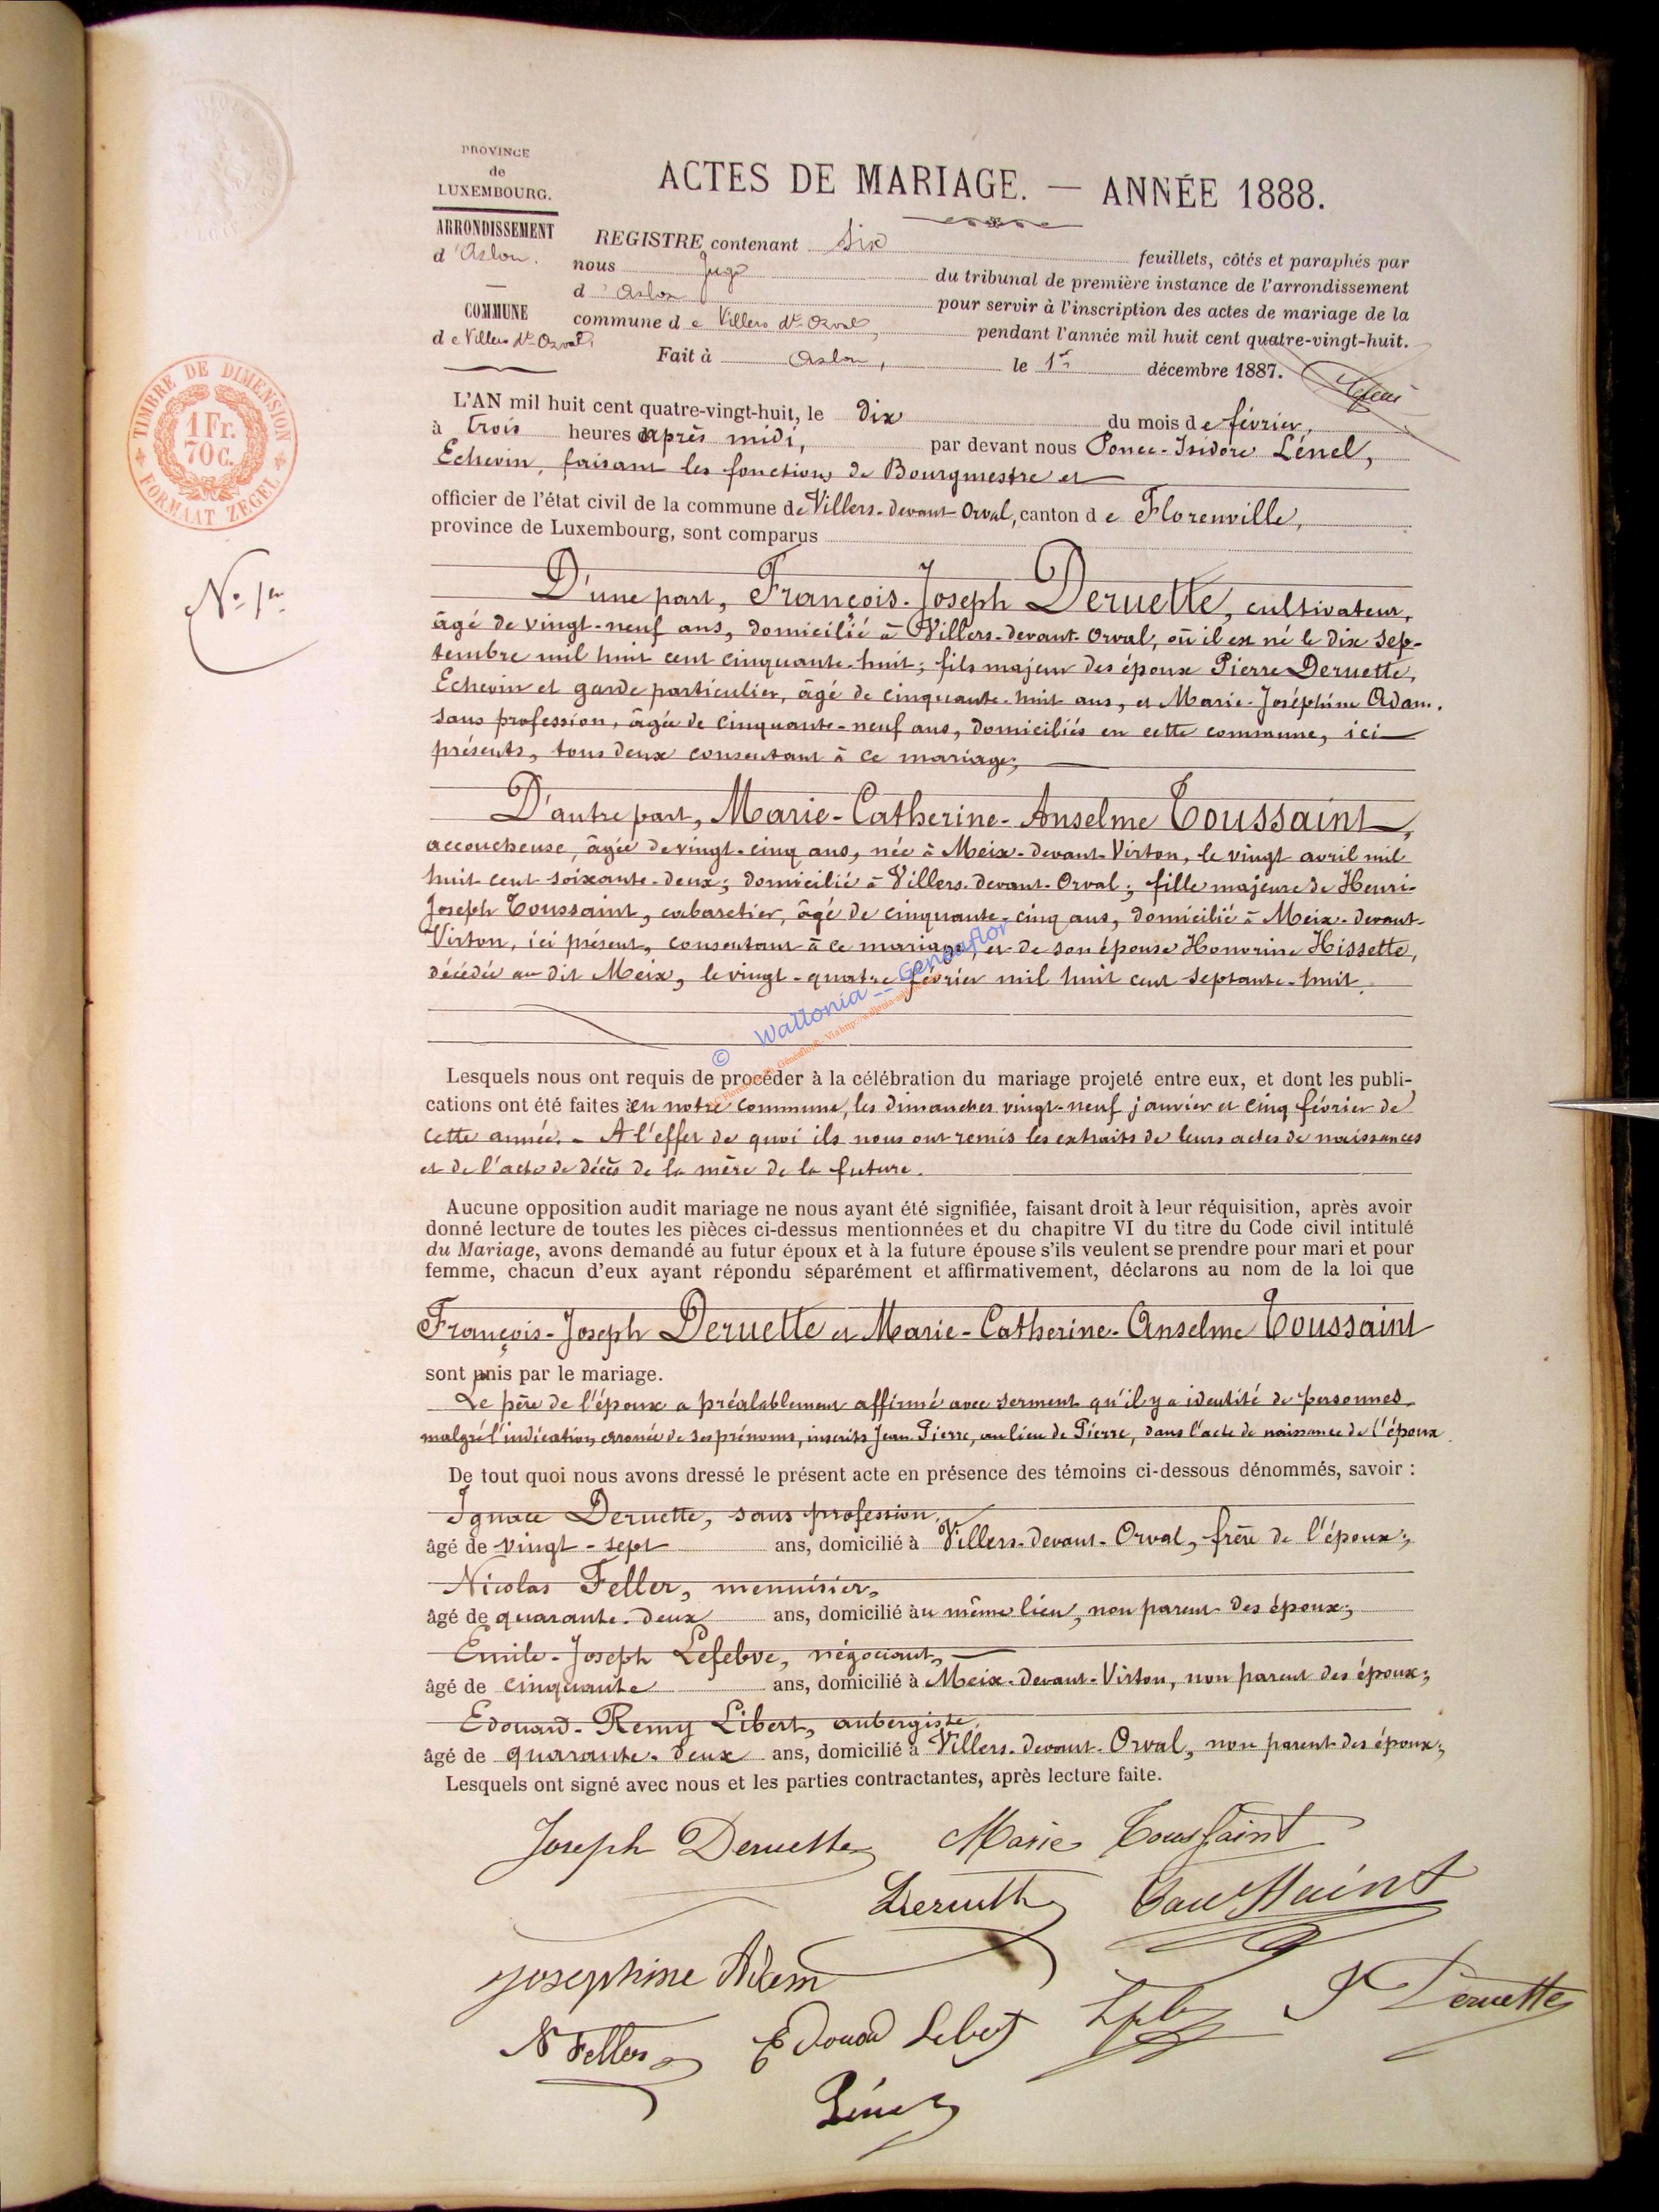 PROVINCE
de
LUXEMBOURG.
ARRONDISSEMENT
d'Arlon.
COMMUNE
de Villers dt Orval.
ACTES DE MARIAGE. — ANNÉE 1888.
REGISTRE contenant six feuillets, côtés et paraphés par
nous Juge du tribunal de première instance de l'arrondissement
d'Arlon pour servir à l'inscription des actes de mariage de la
commune de Villers dt Orval, pendant l'année mil huit cent quatre-vingt-huit.
Fait à Arlon, le 1er décembre 1887.
TIMBRE DE DIMENSION
1 Fr.
70 C.
FORMAAT ZEGEL
No 1er
L'AN mil huit cent quatre-vingt-huit, le dix du mois de février,
à trois heures après midi, par devant nous Ponce-Isidore Lénel,
Echevin, faisant les fonctions de Bourgmestre et
officier de l'état civil de la commune de Villers-devant-Orval, canton de Florenville,
province de Luxembourg, sont comparus
D'une part, François-Joseph Deruette, cultivateur,
âgé de vingt-neuf ans, domicilié à Villers-devant-Orval, où il est né le dix sep-
tembre mil huit cent cinquante-huit; fils majeur des époux Pierre Deruette,
Echevin et garde particulier, âgé de cinquante-huit ans, et Marie-Joséphine Adam,
sans profession, âgée de cinquante-neuf ans, domiciliés en cette commune, ici
présents, tous deux consentant à ce mariage;
D'autre part, Marie-Catherine-Anselme Toussaint,
accoucheuse, âgée de vingt-cinq ans, née à Meix-devant-Virton, le vingt avril mil
huit cent soixante-deux; domicilié à Villers-devant-Orval; fille majeure de Henri-
Joseph Toussaint, cabaretier, âgé de cinquante-cinq ans, domicilié à Meix-devant-
Virton, ici présent, consentant à ce mariage, et de son épouse Honorine Hissette,
décédée au dit Meix, le vingt-quatre février mil huit cent septante-huit.
© Wallonia -- Geneaflor
Lesquels nous ont requis de procéder à la célébration du mariage projeté entre eux, et dont les publi-
cations ont été faites en notre commune, les dimanches vingt-neuf janvier et cinq février de
cette année. - A l'effet de quoi ils nous ont remis les extraits de leurs actes de naissances
et de l'acte de décès de la mère de la future.
Aucune opposition audit mariage ne nous ayant été signifiée, faisant droit à leur réquisition, après avoir
donné lecture de toutes les pièces ci-dessus mentionnées et du chapitre VI du titre du Code civil intitulé
du Mariage, avons demandé au futur époux et à la future épouse s'ils veulent se prendre pour mari et pour
femme, chacun d'eux ayant répondu séparément et affirmativement, déclarons au nom de la loi que
François-Joseph Deruette et Marie-Catherine-Anselme Toussaint
sont unis par le mariage.
Le père de l'époux a préalablement affirmé avec serment qu'il y a identité de personnes
malgré l'indication erronée de ses prénoms, inscrits Jean Pierre, au lieu de Pierre, dans l'acte de naissance de l'époux.
De tout quoi nous avons dressé le présent acte en présence des témoins ci-dessous dénommés, savoir :
Ignace Deruette, sans profession,
âgé de vingt-sept ans, domicilié à Villers-devant-Orval, frère de l'époux;
Nicolas Feller, menuisier,
âgé de quarante-deux ans, domicilié au même lieu, non parent des époux;
Emile-Joseph Lefebve, négociant,
âgé de cinquante ans, domicilié à Meix-devant-Virton, non parent des époux;
Edouard-Remy Libert, aubergiste,
âgé de quarante-deux ans, domicilié à Villers-devant-Orval, non parent des époux;
Lesquels ont signé avec nous et les parties contractantes, après lecture faite.
Joseph Deruette Marie Toussaint
Deruette Toussaint
Josephine Adam
I Deruette
N Feller Edouard Libert
Lénel